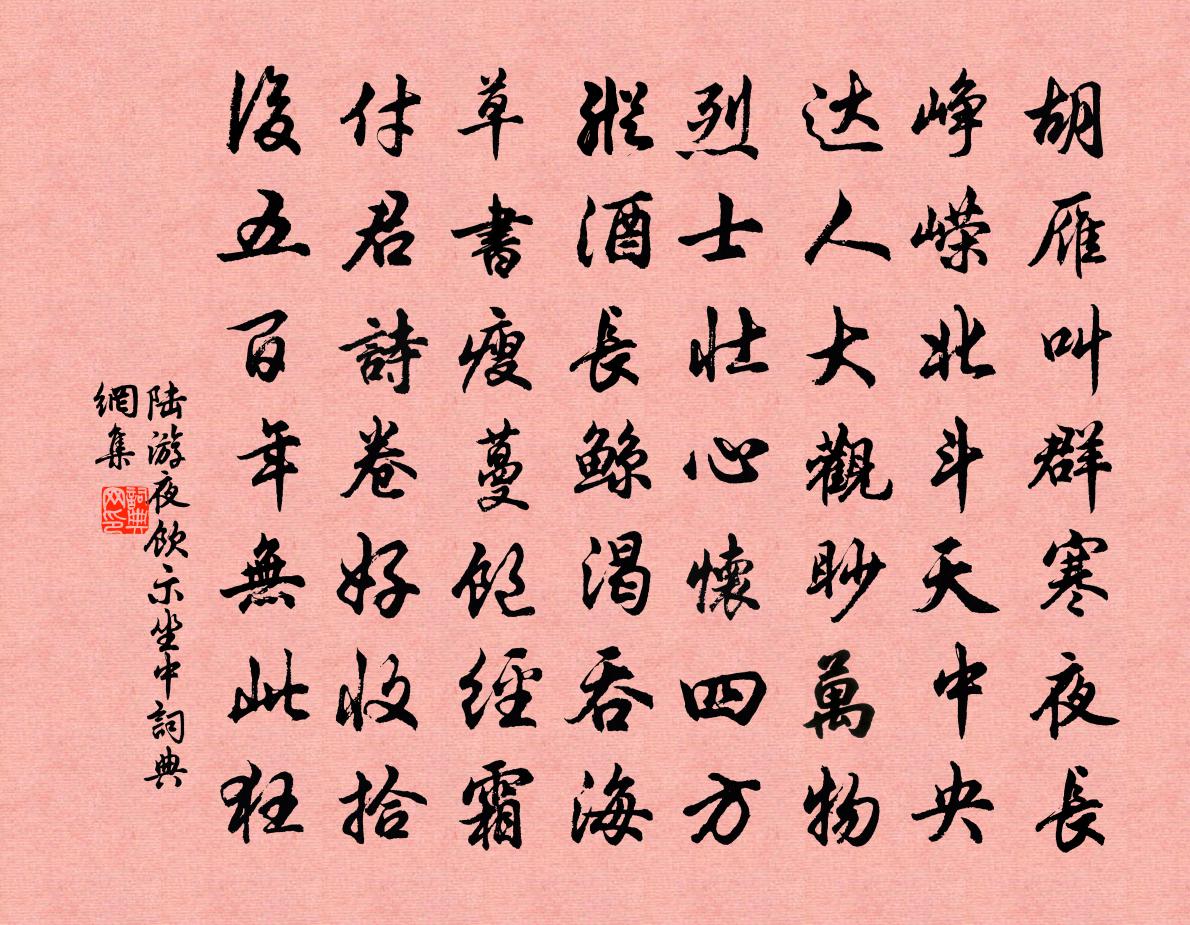 胡雁叫群寒夜長
峥嶸北斗天中央
达人大觀眇萬物
烈士壮心懷四方
縱酒長鲸渴吞海
草書瘦蔓飽經霜
付君詩卷好收拾
後五百年無此狂
陆游夜飲示坐中詞典
網集
詞典
网印